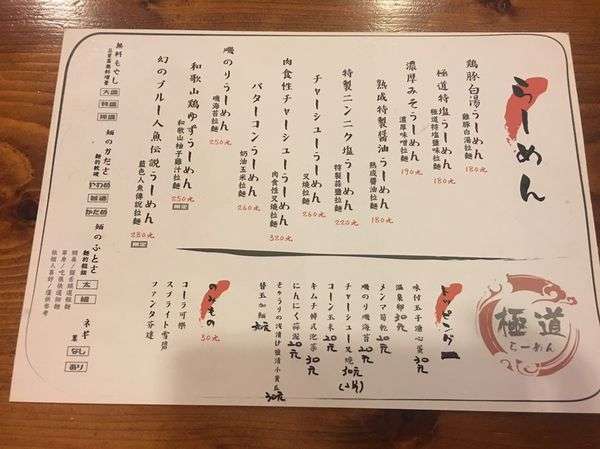 らーめん
鶏豚白湯らーめん
雞豚白湯拉麵
180元
極道特塩らーめん
極道特塩鹽味拉麵
180元
濃厚みそらーめん
濃厚味噌拉麵
190元
熟成特製醤油らーめん
熟成醬油拉麵
180元
特製ニンニク塩らーめん
特製蒜鹽拉麵
220元
チャーシューらーめん
叉燒拉麵
260元
肉食性チャーシューらーめん
肉食性叉燒拉麵
320元
バターコーンらーめん
奶油玉米拉麵
260元
磯のりらーめん
磯海苔拉麵
250元
和歌山鶏ゆずらーめん
和歌山柚子雞汁拉麵
250元
限定
幻のブルー人魚伝説らーめん
藍色人魚傳說拉麵
280元
限定
無料もやし
豆芽菜無料增量
大盛
特盛
麺のかたさ
麵的軟硬
やわめ
普通
かため
麺のふとさ
麵的粗細
太
細
ネギ
蔥
なし
あり
極道
らーめん
トッピング
味付玉子溏心蛋 30元
温泉卵 30元
メンマ筍乾 20元
磯のり磯海苔 20元
チャーシュー叉燒 30元(2片)
コーン玉米 20元
キムチ韓式泡菜 30元
にんにく蒜泥 20元
きゅうりの浅漬け
30元
替玉加麵 30元
のみもの
30元
コーラ可樂
スプライト雪碧
ファンタ芬達